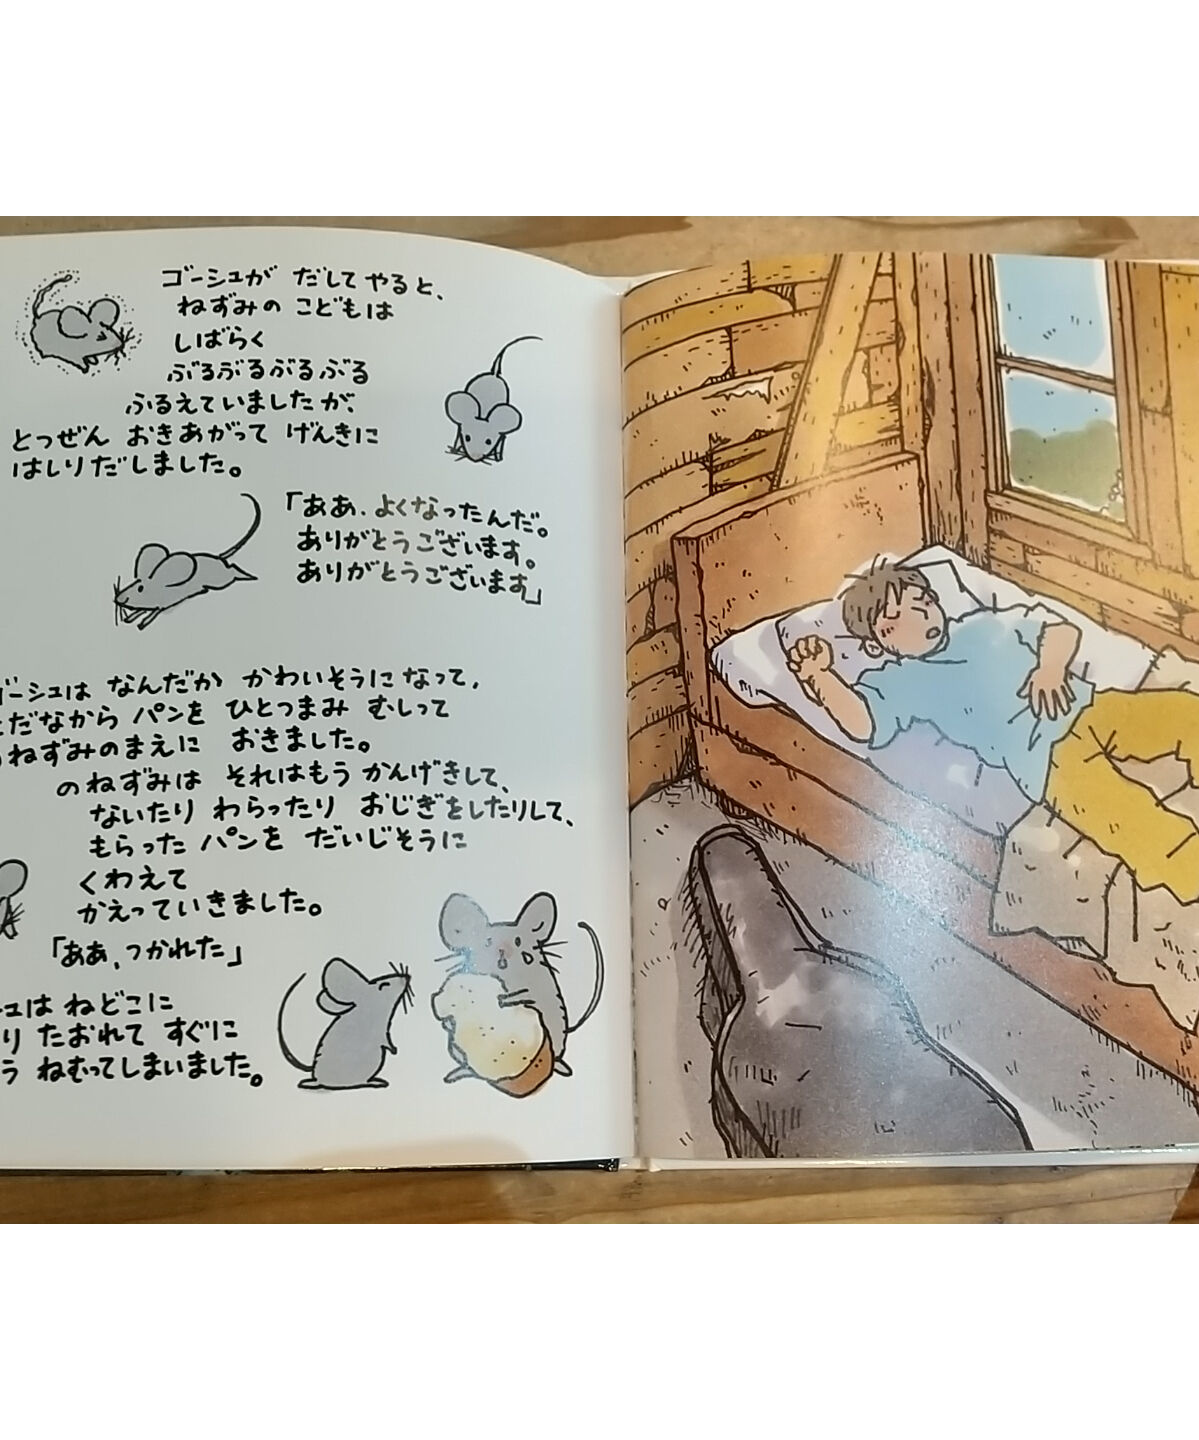 ゴーシュが だして やると、
ねずみの こどもは
しばらく
ぶるぶるぶるぶる
ふるえていましたが、
とつぜん おきあがって げんきに
はしりだしました。
「ああ、よくなったんだ。
ありがとうございます。
ありがとうございます」
ゴーシュは なんだか かわいそうに なって、
とだなから パンを ひとつまみ むしって
ねずみのまえに おきました。
のねずみは それはもう かんげきして、
ないたり わらったり おじぎをしたりして、
もらった パンを だいじそうに
くわえて
かえっていきました。
「ああ、つかれた」
シュは ねどこに
り たおれて すぐに
う ねむってしまいました。